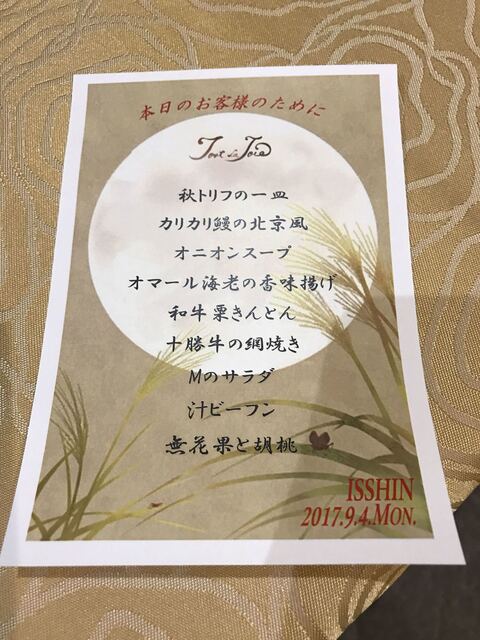 本日のお客様のために
Tort La Joie
秋トリフの一皿
カリカリ鰻の北京風
オニオンスープ
オマール海老の香味揚げ
和牛栗きんとん
十勝牛の網焼き
Mのサラダ
汁ビーフン
無花果と胡桃
ISSHIN
2017.9.4.MON.